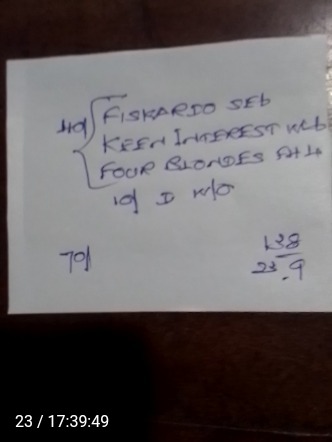 40/ FISKARDO SEb
KEEN INTEREST Wcb
FOUR BLONDES FH4
10/ D W/O
70/ 138
23.9
23 / 17:39:49